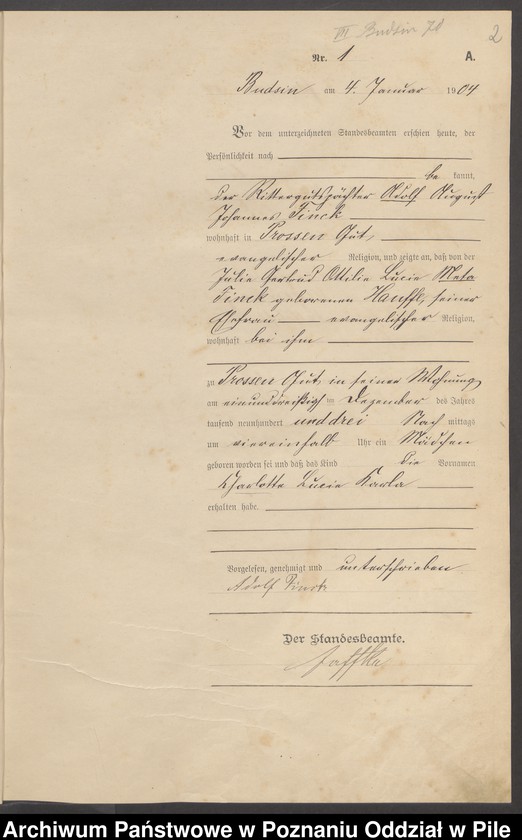 III Budsin 70
2
Nr. 1 A.
Budsin am 4. Januar 1904
Vor dem unterzeichneten Standesbeamten erschien heute, der
Persönlichkeit nach
be kannt,
der Rittergutspächter Adolf August
Johannes Finck
wohnhaft in Prossen Gut,
evangelischer Religion, und zeigte an, daß von der
Julie Gertrud Ottilie Lucie Meta
Finck geborenen Hauffe, seiner
Ehefrau evangelischer Religion,
wohnhaft bei ihm
zu Prossen Gut in seiner Wohnung
am einunddreißigsten Dezember des Jahres
tausend neunhundert und drei Nach mittags
um viereinhalb Uhr ein Mädchen
geboren worden sei und daß das Kind die Vornamen
Charlotte Lucie Karla
erhalten habe.
Vorgelesen, genehmigt und unterschrieben
Adolf Finck
Der Standesbeamte.
Archiwum Państwowe w Poznaniu Oddział w Pile